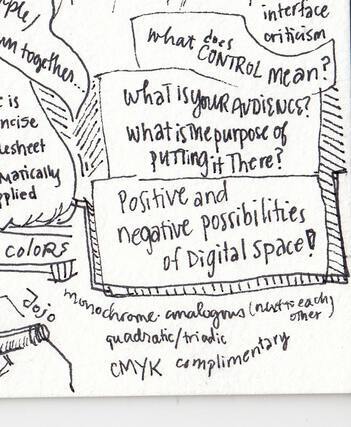 interface
criticism
what does
CONTROL mean?
together...
WHAT IS YOUR AUDIENCE?
What is the purpose of
PUTTING it There?
is
Positive and
negative possibilities
of Digital Space!
COLORS
Dojo
monochrome. analogous (next to each
other)
quadratic/triadic
CMYK complimentary